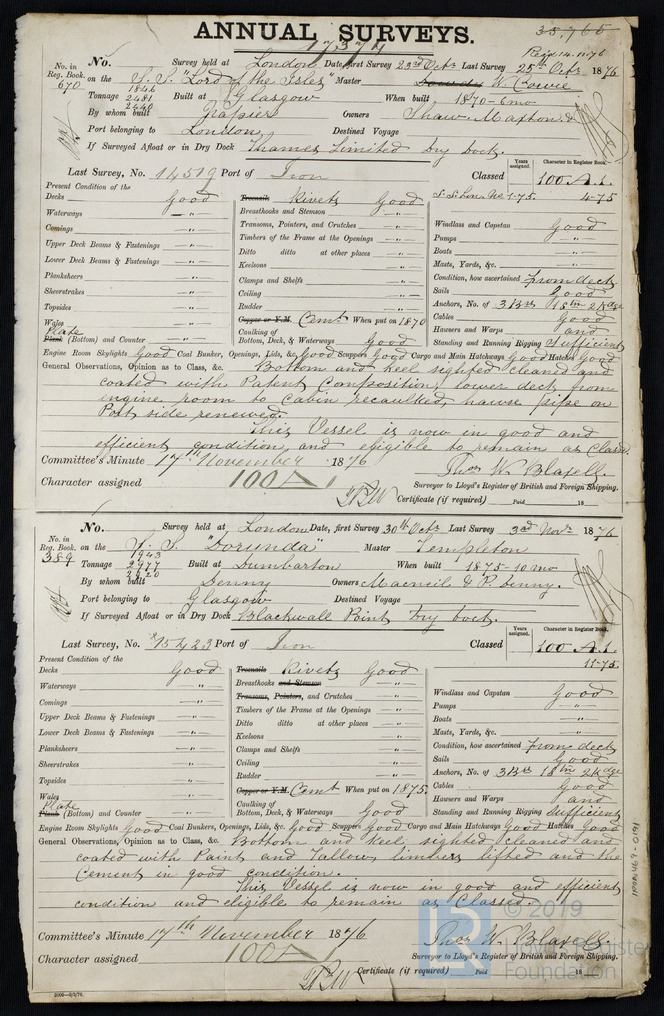 ANNUAL SURVEYS.
38,765
17374
Rec'd 14.11.76
No. in Reg. Book. 670
No. Survey held at London Date, first Survey 23rd Octr Last Survey 25th Octr 1876
on the S.S. "Lord of the Isles" Master W. Cowie
1846
Tonnage 2481 Built at Glasgow When built 1870-6mo
2440
By whom built Napier Owners Shaw, Maxton &
Port belonging to London Destined Voyage
If Surveyed Afloat or in Dry Dock Thames Limited Dry Dock.
Last Survey, No. 14519 Port of Iron Classed
Years assigned.
Character in Register Book.
100 A.1.
S.S. Lon. No. 1-75. 4-75
Present Condition of the
Decks Good
Waterways — " —
Comings — " —
Upper Deck Beams & Fastenings — " —
Lower Deck Beams & Fastenings — " —
Planksheers — " —
Sheerstrakes — " —
Topsides — " —
Wales — " —
Plate
Plank (Bottom) and Counter — " —
Treenails Rivets Good
Breasthooks and Stemson — " —
Transoms, Pointers, and Crutches — " —
Timbers of the Frame at the Openings — " —
Ditto ditto at other places — " —
Keelsons — " —
Clamps and Shelfs — " —
Ceiling — " —
Rudder — " —
Copper or Y.M. Cemt When put on 1870
Caulking of
Bottom, Deck, & Waterways Good
Windlass and Capstan Good
Pumps — " —
Boats — " —
Masts, Yards, &c. — " —
Condition, how ascertained From deck
Sails Good
Anchors, No. of 3 Brs 1 Stm 2 Kdge
Cables Good
Hawsers and Warps and
Standing and Running Rigging Sufficient
Engine Room Skylights Good Coal Bunker, Openings, Lids, &c. Good Scuppers Good Cargo and Main Hatchways Good Hatches Good
General Observations, Opinion as to Class, &c. Bottom and keel sighted cleaned and
coated with Patent Composition, lower deck from
engine room to Cabin recaulked, hawse pipe on
Port side renewed.
This Vessel is now in good and
efficient condition, and eligible to remain as Classed.
Committee's Minute 17th November 1876
Character assigned 100 A 1
Thos W. Blaxell.
Surveyor to Lloyd's Register of British and Foreign Shipping.
Certificate (if required) Paid 18
No. in Reg. Book. 389
No. Survey held at London Date, first Survey 30th Octr Last Survey 3rd Novr 1876
on the S.S. "Dorunda" Master Templeton
1943
Tonnage 2977 Built at Dumbarton When built 1875-10mo
2920
By whom built Denny Owners Macneil & P. Denny.
Port belonging to Glasgow Destined Voyage
If Surveyed Afloat or in Dry Dock Blackwall Point Dry Dock.
Last Survey, No. 15423 Port of Iron Classed
Years assigned.
Character in Register Book.
100 A.1.
11-75.
Present Condition of the
Decks Good
Waterways — " —
Comings — " —
Upper Deck Beams & Fastenings — " —
Lower Deck Beams & Fastenings — " —
Planksheers — " —
Sheerstrakes — " —
Topsides — " —
Wales — " —
Plate
Plank (Bottom) and Counter — " —
Treenails Rivets Good
Breasthooks and Stemson — " —
Transoms, Pointers, and Crutches — " —
Timbers of the Frame at the Openings — " —
Ditto ditto at other places — " —
Keelsons — " —
Clamps and Shelfs — " —
Ceiling — " —
Rudder — " —
Copper or Y.M. Cemt When put on 1875.
Caulking of
Bottom, Deck, & Waterways Good
Windlass and Capstan Good
Pumps — " —
Boats — " —
Masts, Yards, &c. — " —
Condition, how ascertained From deck
Sails Good
Anchors, No. of 3 Brs 1 Stm 2 Kdge
Cables Good
Hawsers and Warps and
Standing and Running Rigging Sufficient
Engine Room Skylights Good Coal Bunkers, Openings, Lids, &c. Good Scuppers Good Cargo and Main Hatchways Good Hatches Good
General Observations, Opinion as to Class, &c. Bottom and Keel sighted cleaned and
coated with Paint and Tallow, limbers lifted and the
Cement in good condition.
This Vessel is now in good and efficient
condition and eligible to remain as Classed.
Committee's Minute 17th November 1876
Character assigned 100 A 1
Thos W. Blaxell.
Surveyor to Lloyd's Register of British and Foreign Shipping.
Certificate (if required) Paid 18
© 2019
Lloyd's Register
Foundation